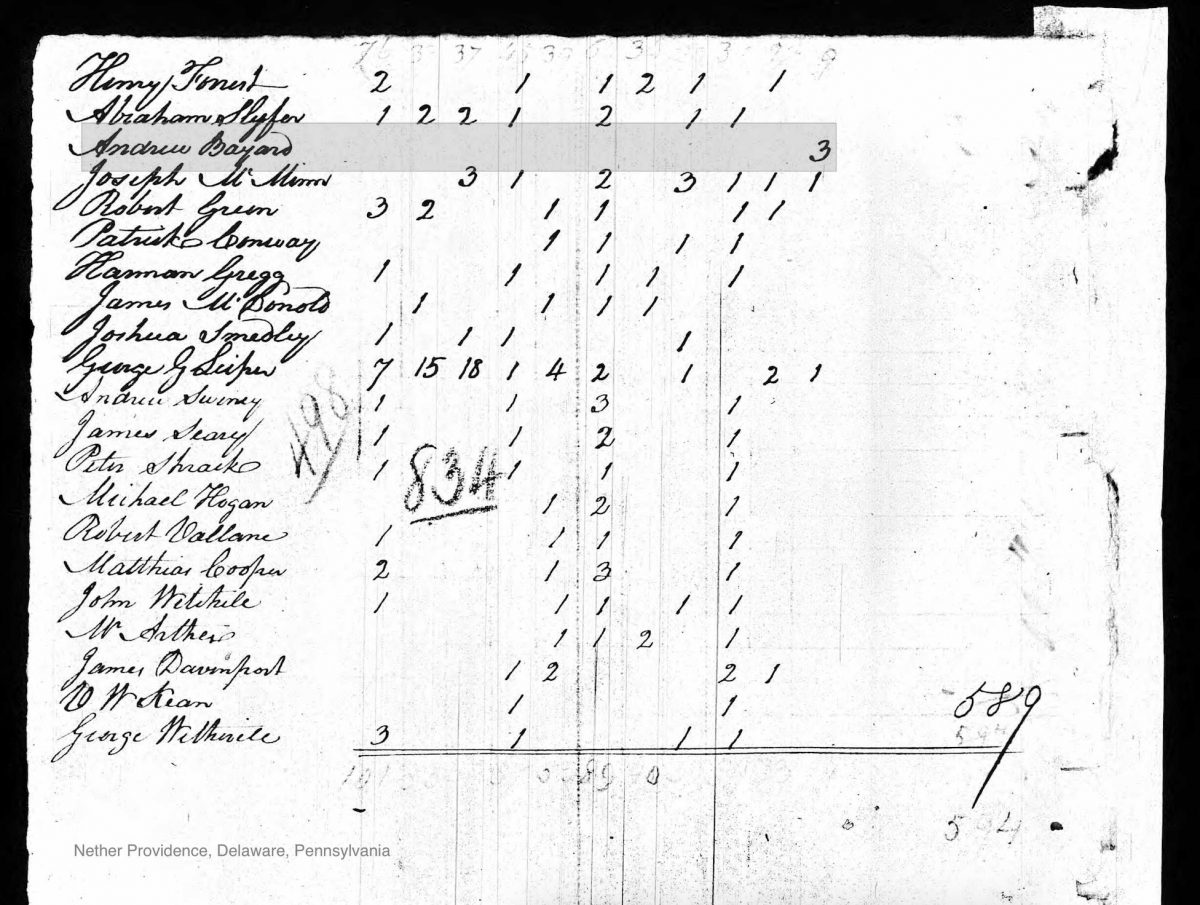 Henry Forrest 2 1 1 2 1 1
Abraham Slyfer 1 2 2 1 2 1 1
Andrew Bayard 3
Joseph McMinn 3 1 2 3 1 1 1
Robert Green 3 2 1 1 1 1
Patrick Conway 1 1 1 1
Harman Gregg 1 1 1 1 1
James McDonold 1 1 1 1
Joshua Smedley 1 1 1 1
George G Leiper 7 15 18 1 4 2 1 2 1
Andrew Swiney 1 1 3 1
James Seary 1 1 2 1
498
Peter Shrack 1 1 1 1
834
Michael Hogan 1 2 1
Robert Vallane 1 1 1 1
Matthias Cooper 2 1 3 1
John 1 1 1 1 1
Mc Arther 1 1 2 1
James Davinport 1 2 2 1
W Kean 1 1
589
George 3 1 1 1
594
Nether Providence, Delaware, Pennsylvania